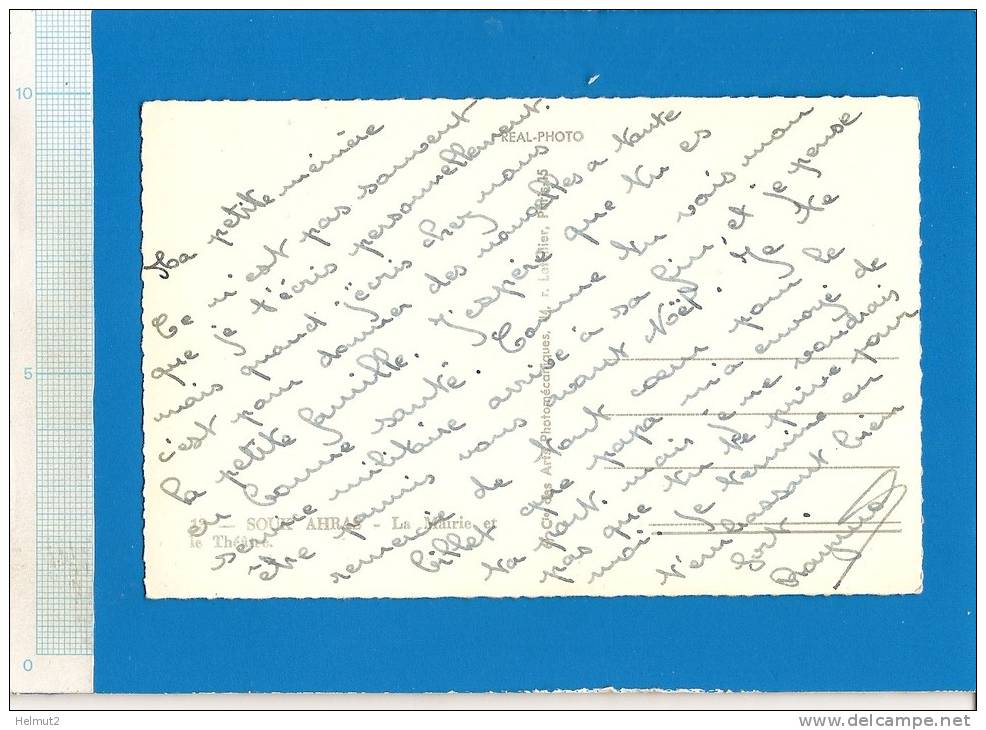 Ma petite mémère
Ce n'est pas souvent
que je t'écris personnellement.
mais quand j'écris chez nous
c'est pour donner des nouvelles a toute
la petite famille. J'espère que tu es
en bonne santé. Comme tu vois mon
service militaire arrive à sa fin et je pense
être parmis vous avant Noël. Je te
remercie de tout coeur pour le
billet que papa m'a envoyé de
ta part. mais je ne voudrais
pas que tu te prive pour
moi. Je termine en
t'embrassant bien
fort.
Raymond
REAL-PHOTO
Cie des Arts Photomécaniques, 44, r. Letellier, Paris-15
13 — SOUK AHRAS - La Mairie et
le Théâtre.
10
5
0
Helmut2
www.delcampe.net